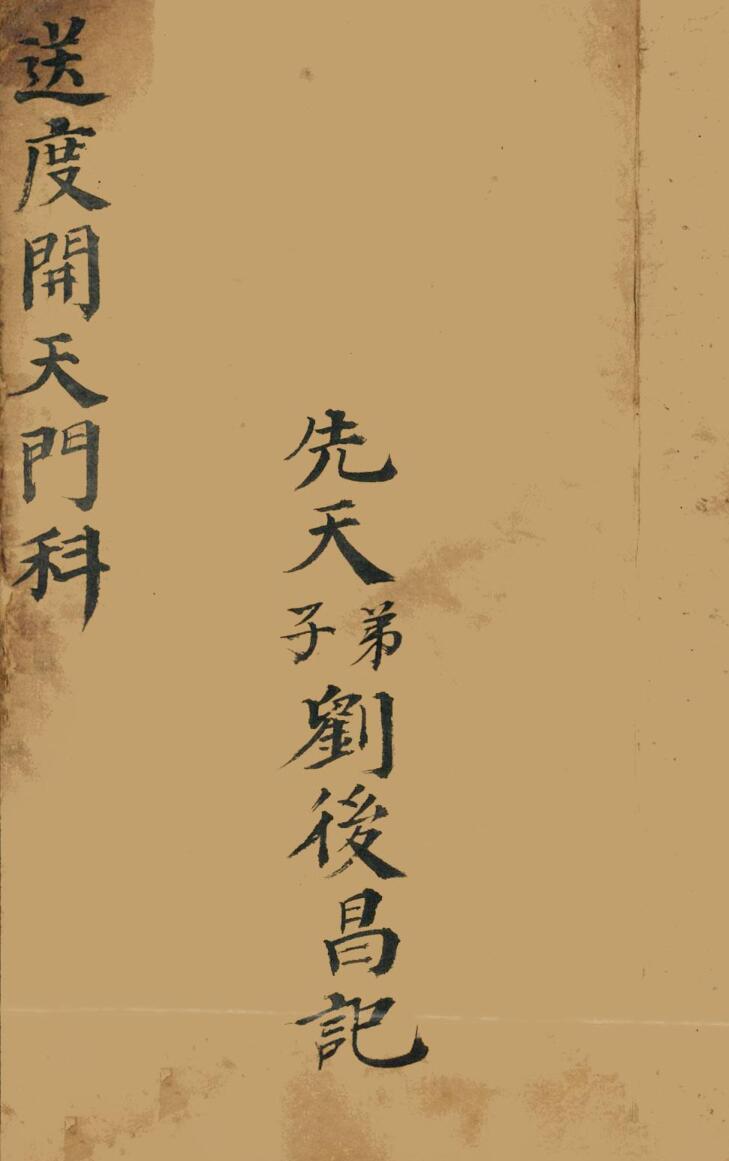 先天弟子劉後昌記
送度開天門科